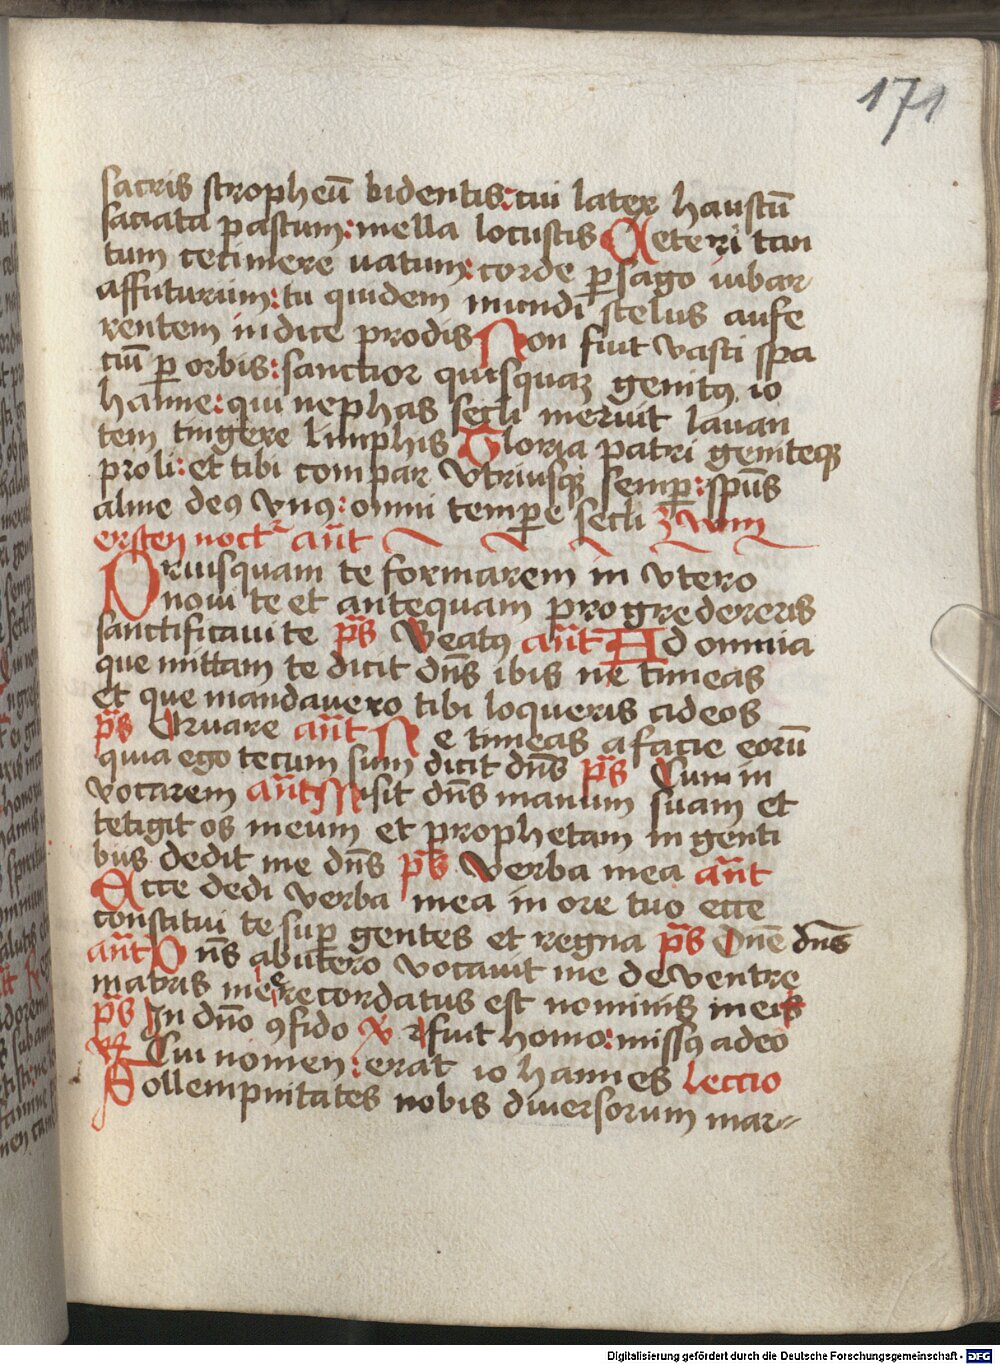 171
sacris stropheū bidentis: cui latex haustū
saciata pastum: mella locustis Ceteri tan
tum cecinere vatum: corde psago iubar
affuturum: tu quidem mundi scelus aufe
rentem indice prodis Non fuit vasti spa
ciū p orbis: sanctior quisquaz genitꝰ io
hanne: qui nephas secli meruit lauan
tem tingere limphis Gloria patri geniteqꝫ
proli: et tibi compar vtriusqꝫ semp: spūs
alme deꝰ vnꝰ: omni tempe secli Zum
ersten noct aūt
Priusquam te formarem in vtero
noui te et antequam progredereris
sanctificaui te ps̄ Beatꝰ aūt Ad omnia
que mittam te dicit dn̄s ibis ne timeas
et que mandauero tibi loqueris adeos
ps̄ Qruare aūt Ne timeas a facie eorū
quia ego tecum sum dicit dn̄s ps̄ Cum in
vocarem aūt Misit dn̄s manum suam et
tetigit os meum et prophetam in genti
bus dedit me dn̄s ps̄ Verba mea aūt
Ecce dedi verba mea in ore tuo ecce
constitui te sup gentes et regna ps̄ Dn̄e dn̄s
aūt Dn̄s abutero vocauit me de ventre
matris me recordatus est nominis meis
ps̄ In dn̄o ꝯfido ꝟ ffuit homo: missꝰ adeo
Cui nomen: erat iohannes Leccio
Sollempnitates nobis diuersorum mar
Digitalisierung gefördert durch die Deutsche Forschungsgemeinschaft - DFG